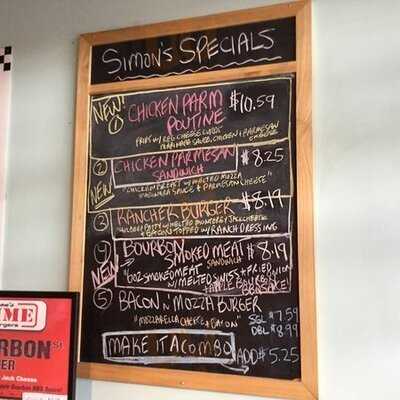 SIMON'S SPECIALS
NEW!
① CHICKEN PARM $10.59
POUTINE
② CHICKEN PARMESAN $8.25
SANDWICH
NEW
"CHICKEN BREAST W/ MELTED MOZZA
SAUCE & PARMESAN CHEESE"
③ RANCHER BURGER $8.19
PATTY W/ MELTED MONTEREY JACK CHEESE
& BACON TOPPED W/ RANCH DRESSING
④ BOURBON SMOKED MEAT $8.19
SANDWICH
NEW
"6OZ SMOKED MEAT
W/ MELTED SWISS & FRIED ONION
& APPLE BOURBON
BBQ SAUCE!
⑤ BACON N MOZZA BURGER
"MOZZARELLA CHEESE & BACON"
SGL $7.59
DBL $8.99
MAKE IT A COMBO ADD $5.25
ME
RBON ST
ER
Jack Cheese